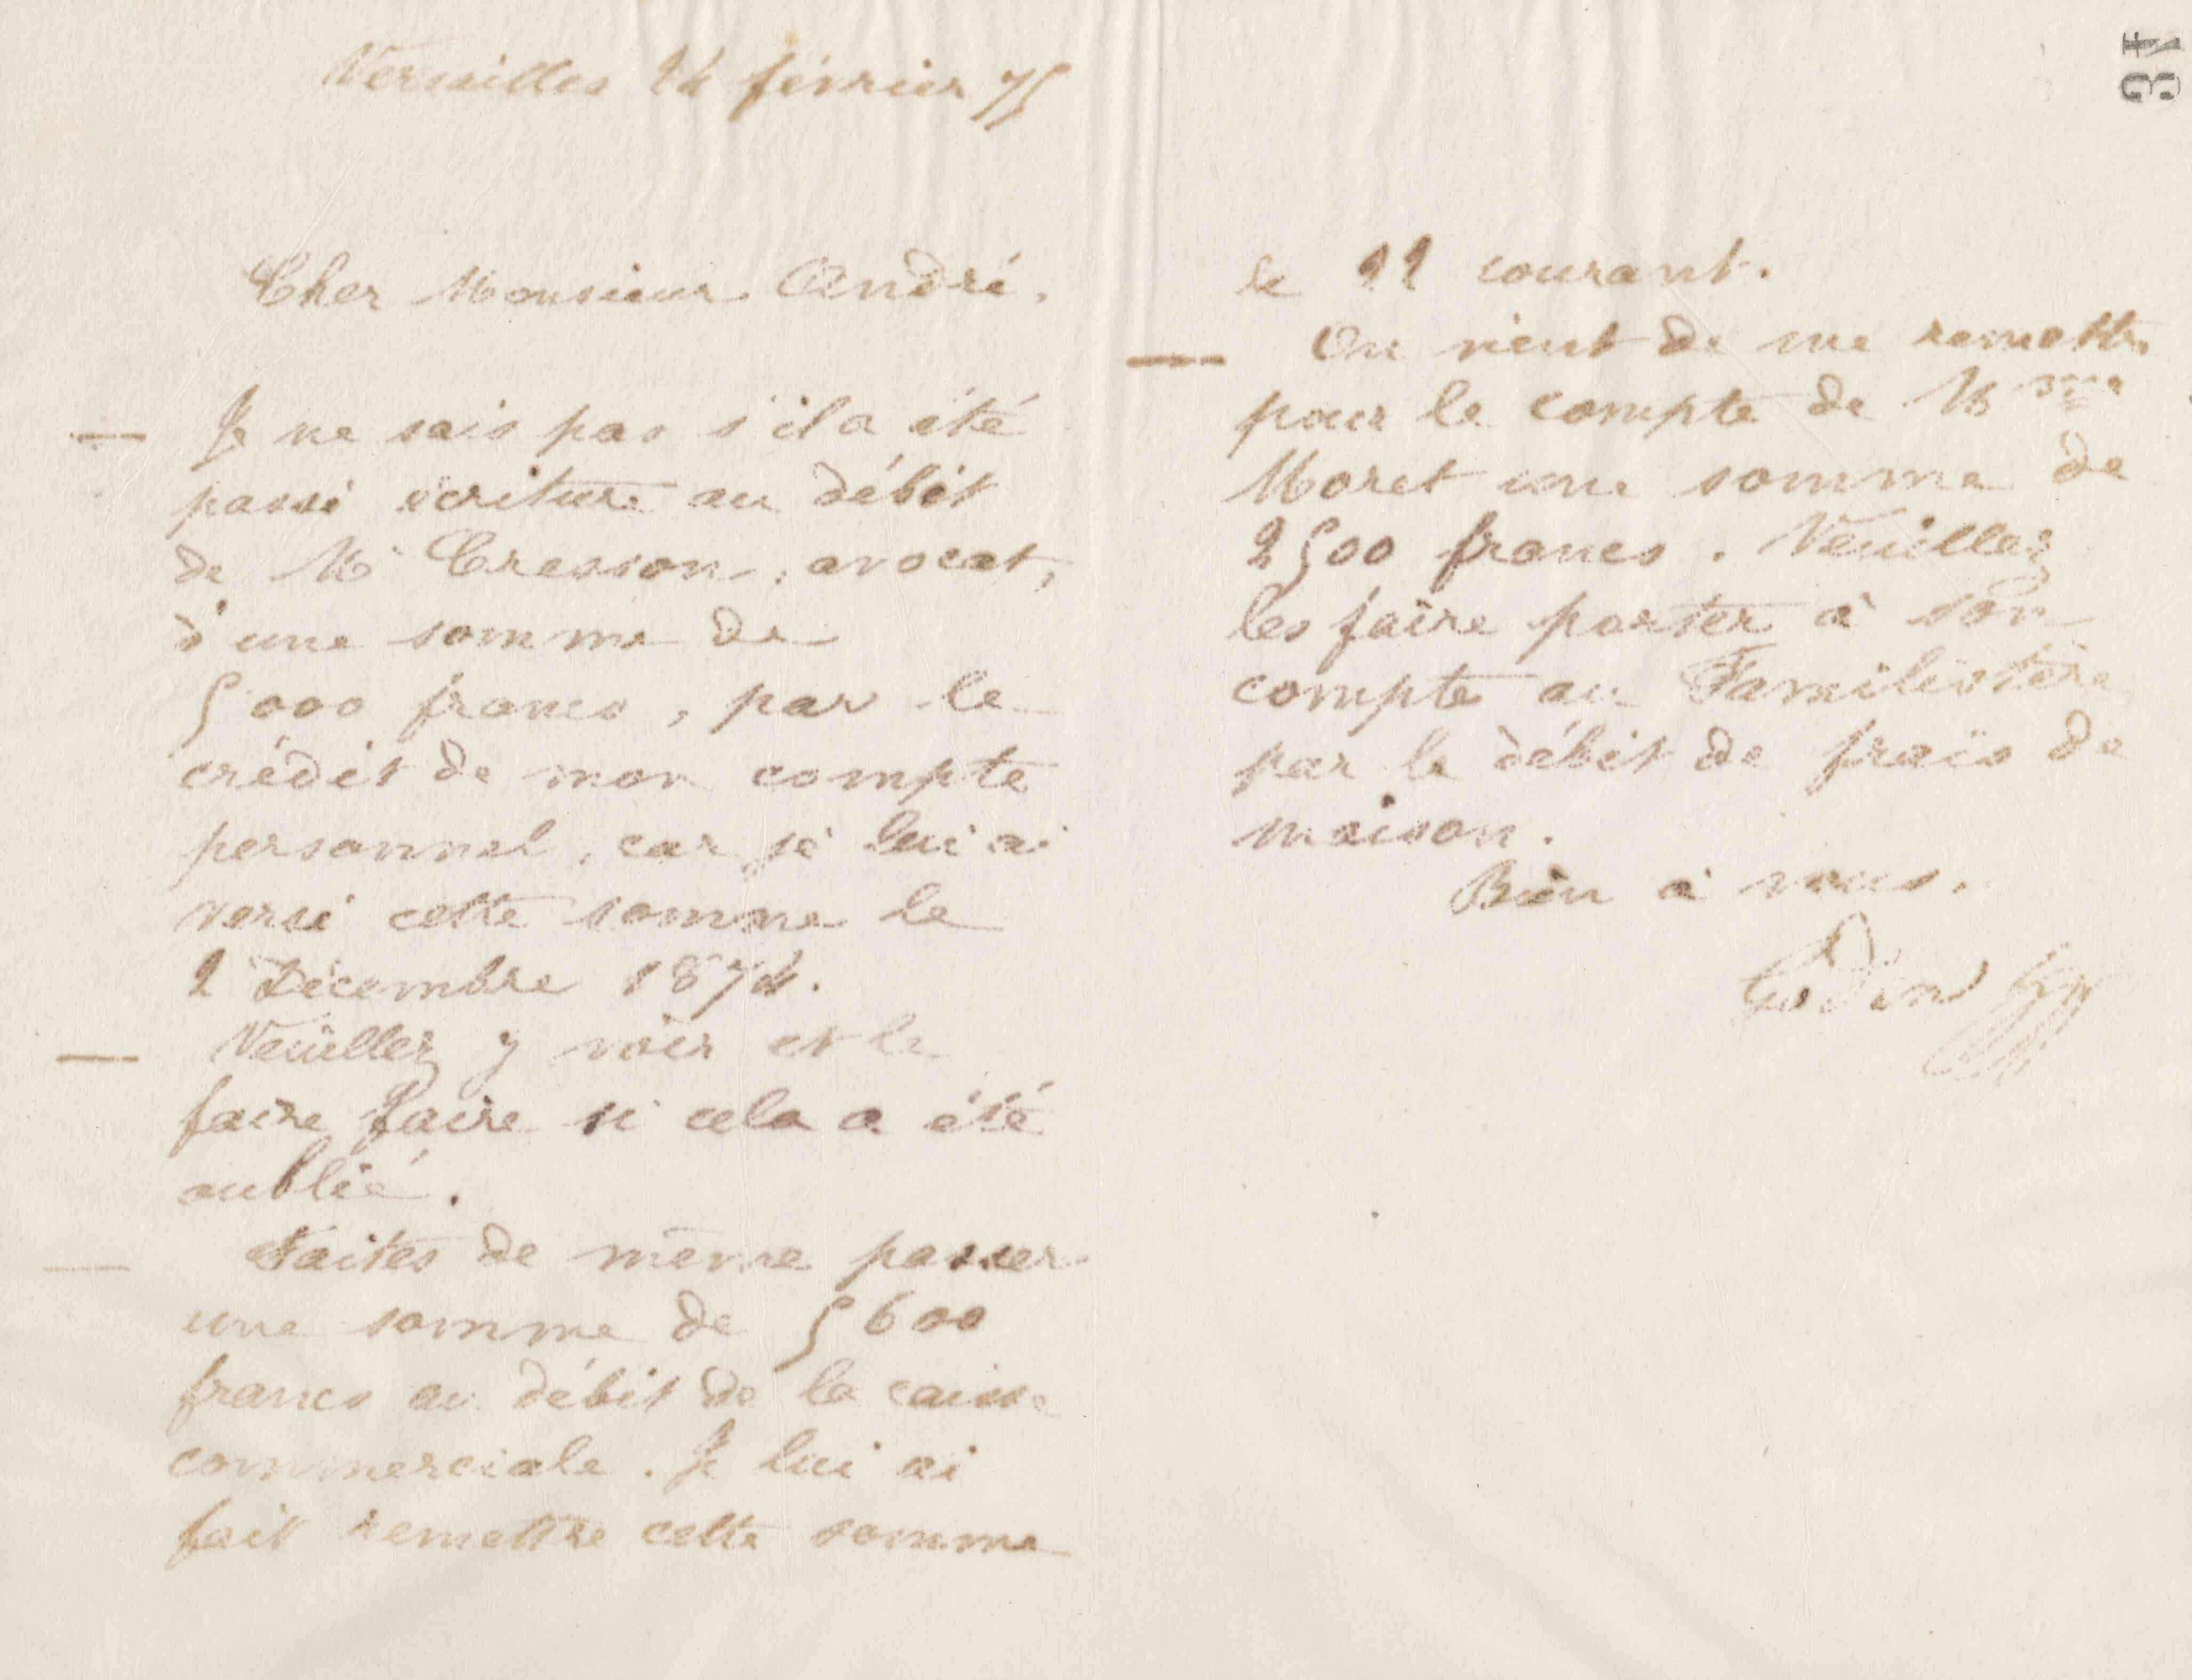 Versailles 24 février 75
34
Cher Monsieur André,
— Je ne sais pas s'il a été
passé écriture au débit
de Mr Cresson, avocat,
d'une somme de
5000 francs, par le
crédit de mon compte
personnel, car je lui ai
versé cette somme le
2 Décembre 1874.
— Veuillez y voir et le
faire faire si cela a été
oublié.
— Faites de même passer
une somme de 5600
francs au débit de la caisse
commerciale. Je lui ai
fait remettre cette somme
le 22 courant.
— On vient de me remettre
pour le compte de Mme
Moret une somme de
2500 francs. Veuillez
les faire porter à son
compte au Familistère
par le débit de frais de
maison.
Bien à vous.
Godin